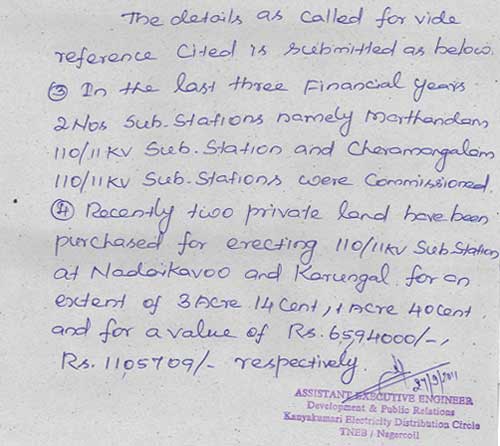 The details as called for vide
reference cited is submitted as below.
③ In the last three Financial years
2 Nos Sub-Stations namely Marthandam
110/11KV Sub-Station and Cheramangalam
110/11KV Sub-Stations were Commissioned
④ Recently two private land have been
purchased for erecting 110/11KV Sub Station
at Nadaikavoo and Karungal for an
extent of 3 Acre 14 Cent, 1 Acre 40 cent
and for a value of Rs. 6594000/-,
Rs. 1105709/- respectively.
27/9/2011
ASSISTANT EXECUTIVE ENGINEER
Development & Public Relations
Kanyakumari Electricity Distribution Circle
TNEB / Nagercoil